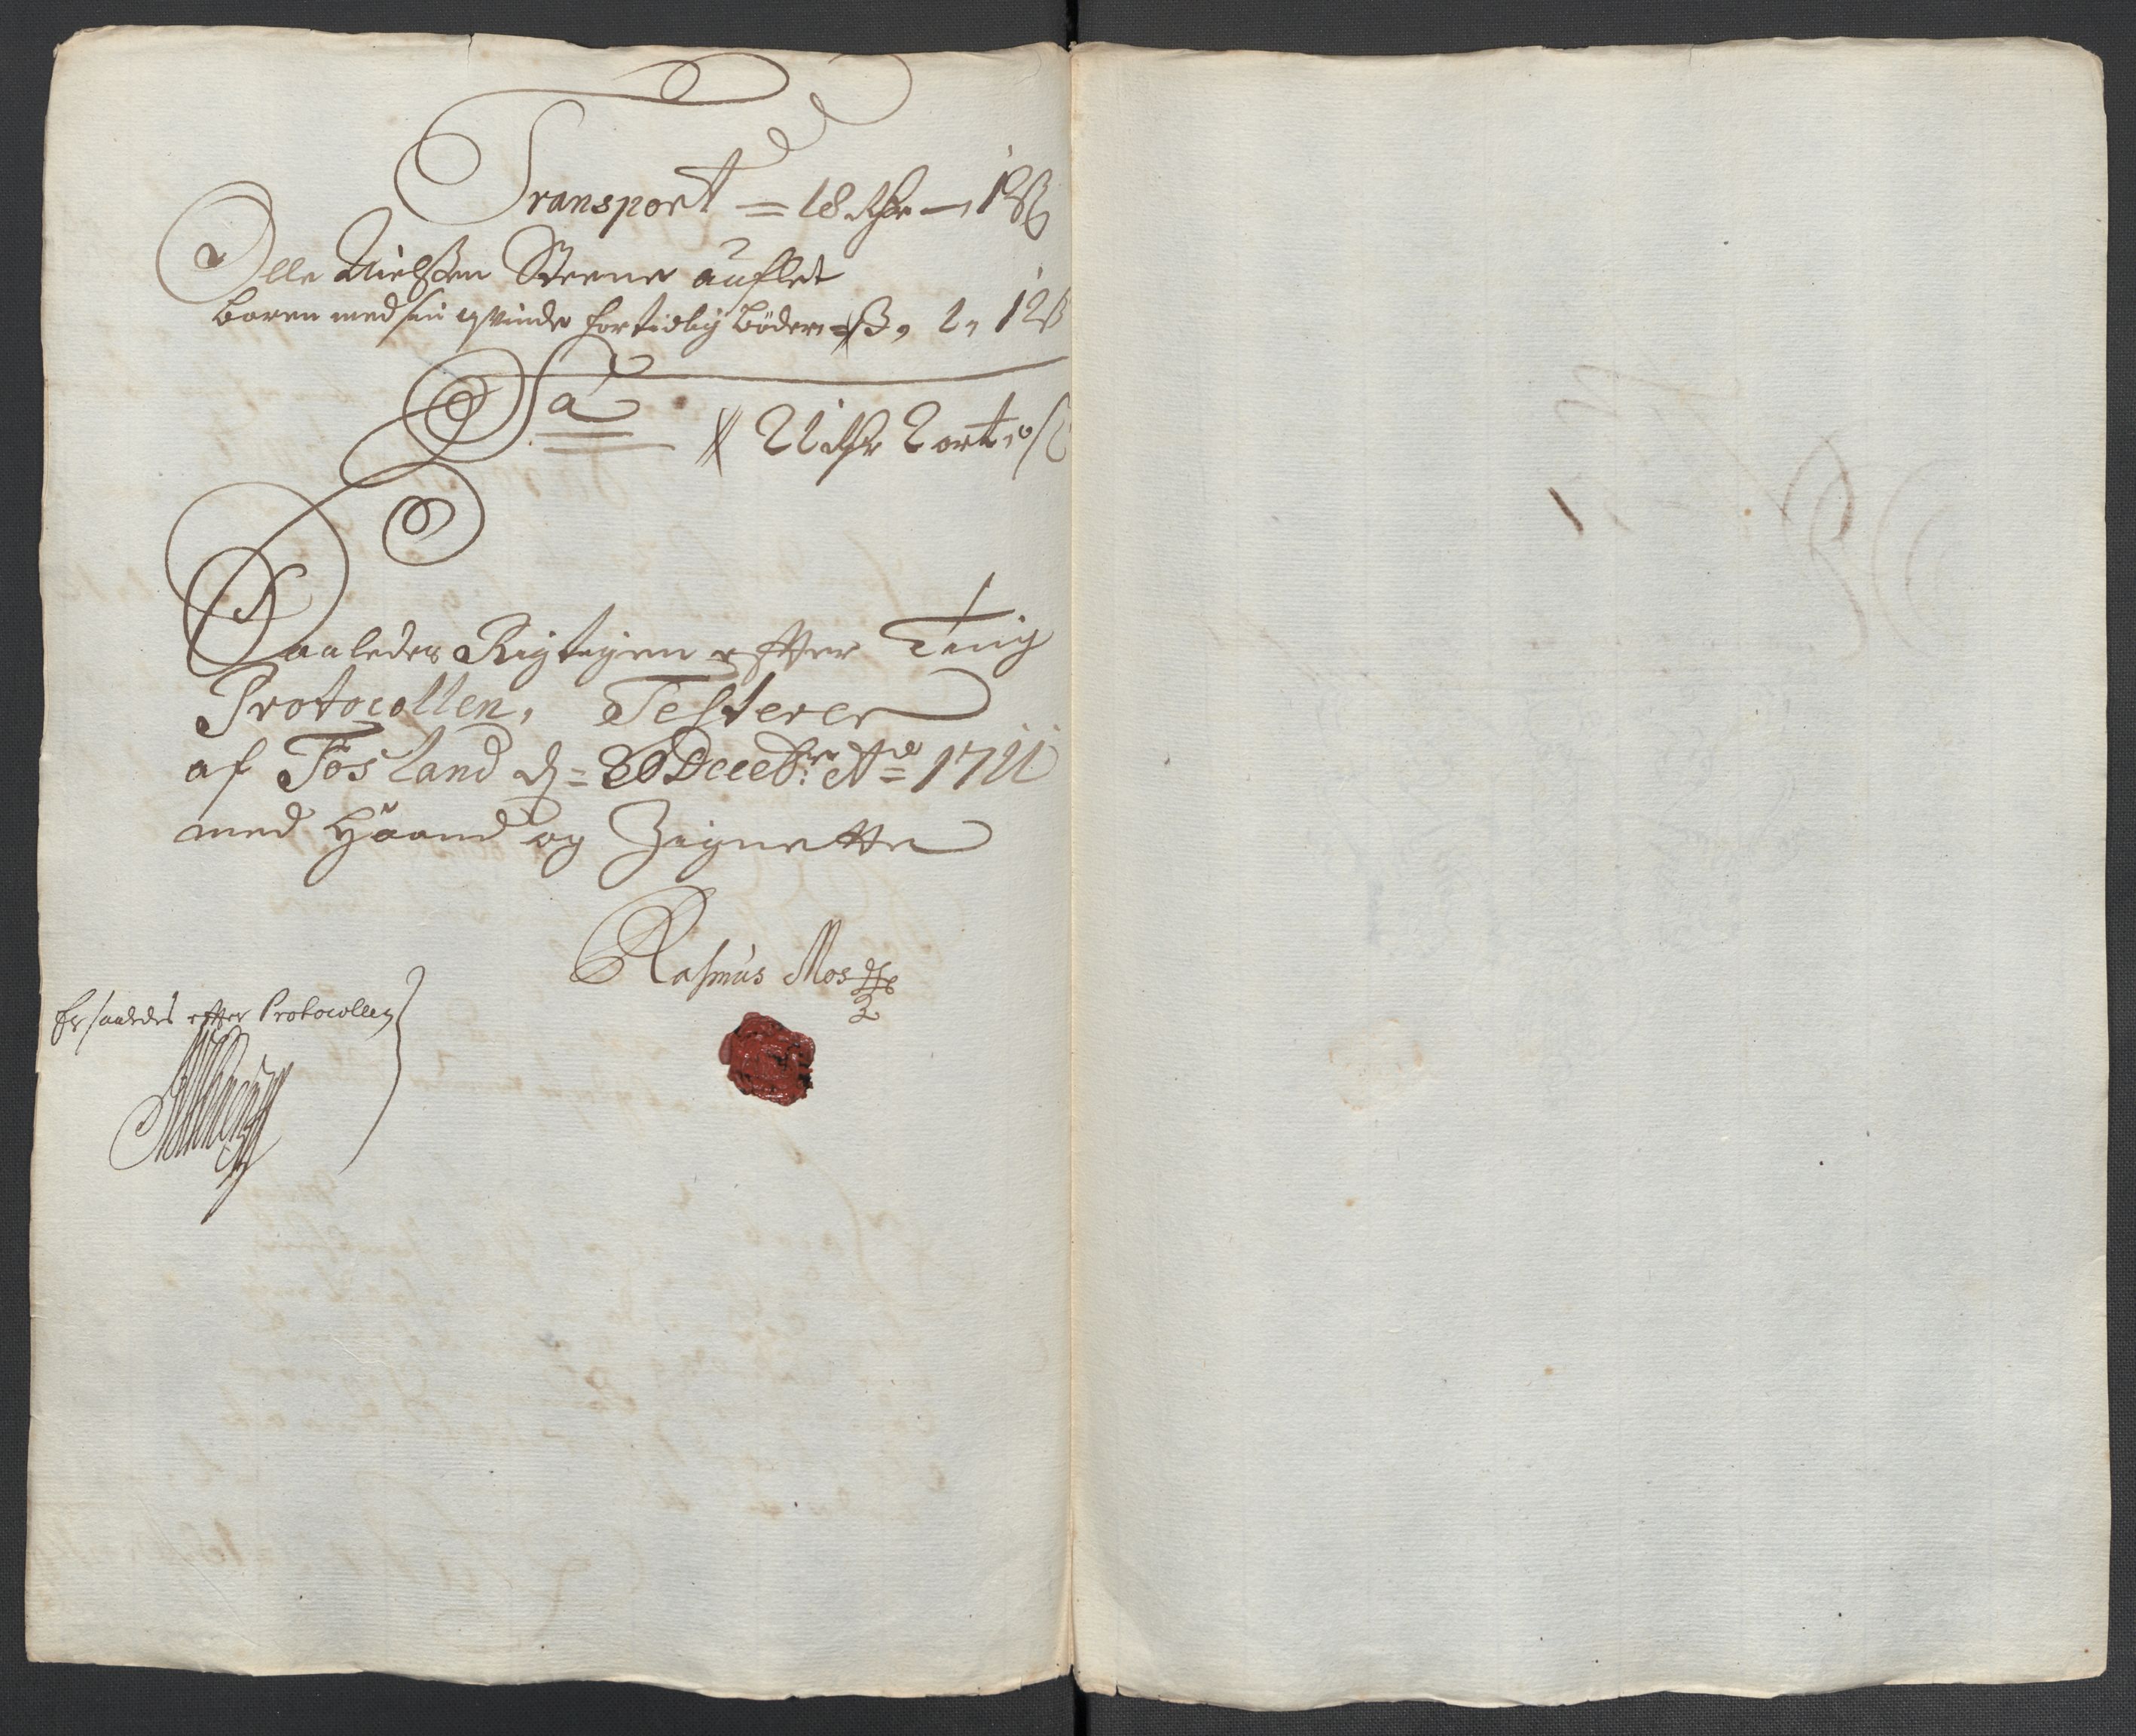 Transport = 18 Rdr — 12 ß
Olle Nielßen Steene auflet
baren med sin qvinde for tidlig bøder = 3, 1, 12 ß
Sa
21 Rdr 2 ort, 0 ß
Saaledes Rigtigen efter Ting
Protocollen, Testerer
af Fosland d = 20 Decebr: Ao = 1711
med Haand og Zignette
Rasmus Mos
Er saaledes efter Protocollen